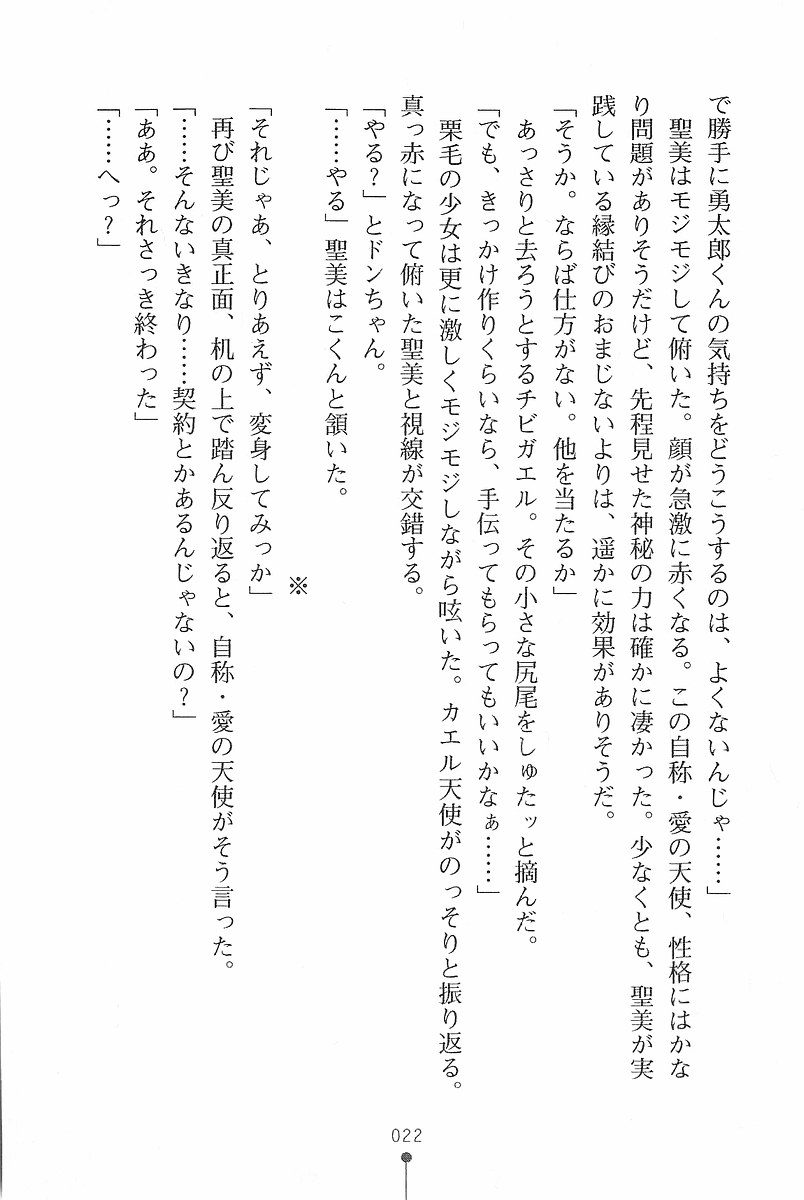 で勝手に勇太郎くんの気持ちをどうこうするのは、よくないんじゃ……」
　聖美はモジモジして俯いた。顔が急激に赤くなる。この自称・愛の天使、性格にはかな
り問題がありそうだけど、先程見せた神秘の力は確かに凄かった。少なくとも、聖美が実
践している縁結びのおまじないよりは、遥かに効果がありそうだ。
「そうか。ならば仕方がない。他を当たるか」
　あっさりと去ろうとするチビガエル。その小さな尻尾をしゅたッと摘んだ。
「でも、きっかけ作りくらいなら、手伝ってもらってもいいかなぁ……」
　栗毛の少女は更に激しくモジモジしながら呟いた。カエル天使がのっそりと振り返る。
真っ赤になって俯いた聖美と視線が交錯する。
「やる？」とドンちゃん。
「……やる」聖美はこくんと頷いた。
※
「それじゃあ、とりあえず、変身してみっか」
　再び聖美の真正面、机の上で踏ん反り返ると、自称・愛の天使がそう言った。
「……そんないきなり……契約とかあるんじゃないの？」
「ああ。それさっき終わった」
「……へっ？」
022